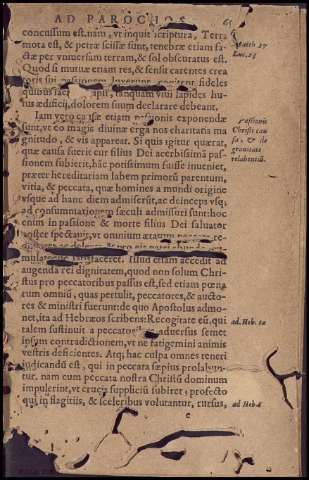 AD PAROCHOS 65
concussum est. nam, vt inquit scriptura, Terra
mota est, & petræ scissæ sunt, tenebræ etiam fa-
ctæ per vniuersum terram, & sol obscuratus est.
Matth 27
Luc. 23
Quod si mutuæ etiam res, & sensu carentes crea
fideles
quibus lapides hu-
ius ædificij, dolorem suum declarare debeant.
Iam vero causæ etiam passionis exponendæ
sunt, vt eo magis diuinæ erga nos charitatis ma
gnitudo, & vis appareat. Si quis igitur quærat,
quæ causa fuerit cur filius Dei acerbissimã pas-
sionem subierit, hãc potissimum fuisse inueniet,
præter hereditariam labem primorũ parentum,
vitia, & peccata, quæ homines a mundi origine
vsque ad hanc diem admiserũt, ac deinceps vsq;
ad consummationem sæculi admissuri sunt: hoc
enim in passione & morte filius Dei saluator
noster spectauit, vt omnium ætatum
Passionis
Christi cau
sa, & de
grauitate
relabentiũ.
mulateque satisfaceret. Illud etiam accedit ad
augenda rei dignitatem, quod non solum Chri-
stus pro peccatoribus passus est, sed etiam pœna
rum omniũ, quas pertulit, peccatores, & aucto-
res & ministri fuerunt: de quo Apostolus admo-
net, ita ad Hebræos scribens: Recogitate eũ, qui
talem sustinuit a peccatoribus aduersus semet
ipsum contradictionem, vt ne fatigemini animis
vestris deficientes. Atq; hac culpa omnes teneri
iudicandũ est, qui in peccata sæpius prolabun-
tur. nam cum peccata nostra Christũ dominum
impulerint, vt crucis suppliciũ subiret, profecto
qui in flagitijs, & sceleribus volutantur, rursus,
ad Heb. 12
ad Heb. 6